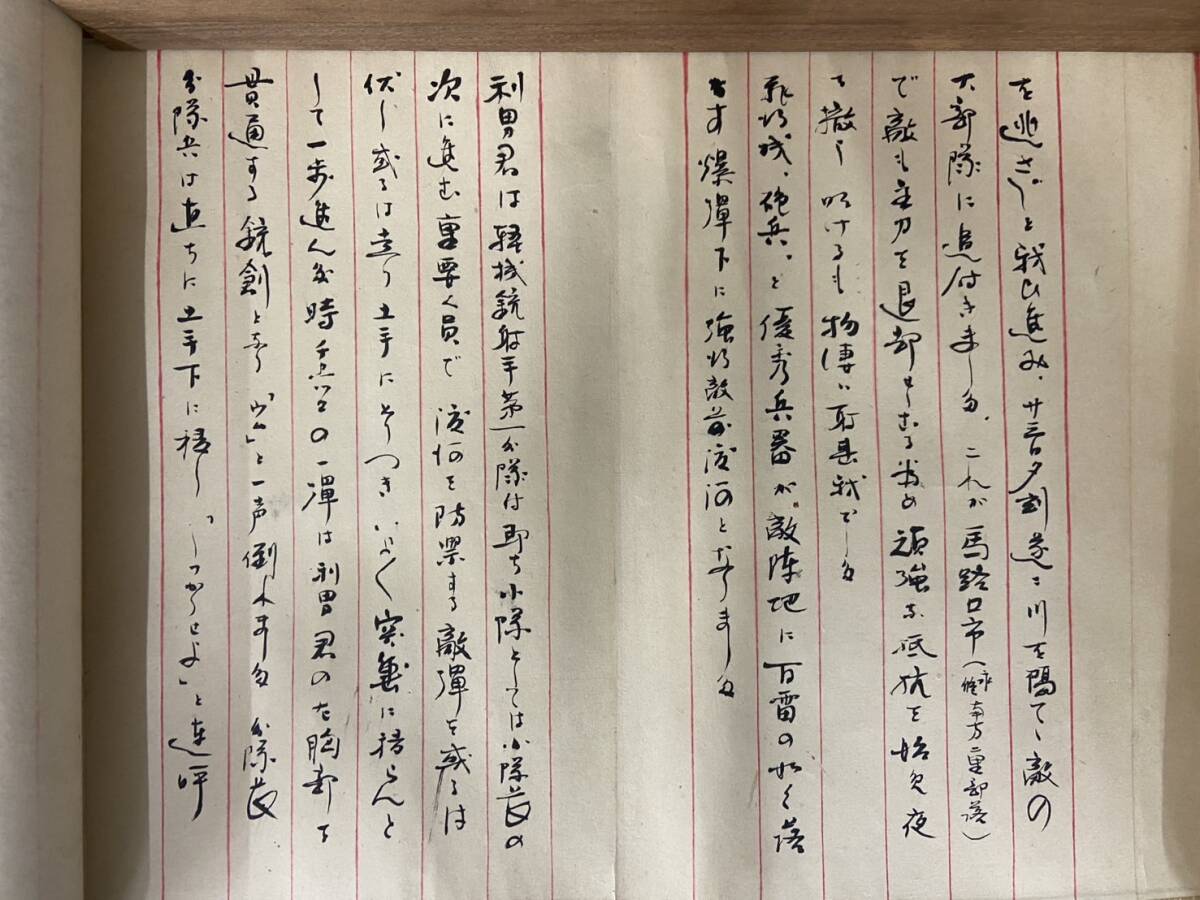 を逃さじと戦ひ進み、廿三日夕刻遂に川を隔てゝ敵の
大部隊に追付きました、これが馬路口市(南方二里部落)
で敵も主力を退却せしむる為め頑強な抵抗を始め夜
を徹し明けるも物凄い射撃戦でした
飛行機、砲兵、と優秀兵器が敵陣地に百雷の如く落
す爆弾下に強行敵前渡河となりました
利男君は軽機銃射手第一分隊は即ち小隊としては小隊長の
次に進む重要人員で渡河を防禦する敵弾を或るは
伏し或るは走り土手にとりつきいよ〱突撃に移らんと
して一歩進んだ時チエコの一弾は利男君の左胸部を
貫通する銃創となり「」と一声倒れました 分隊長
分隊兵は直ちに土手下に移し「しっかりせよ」と連呼